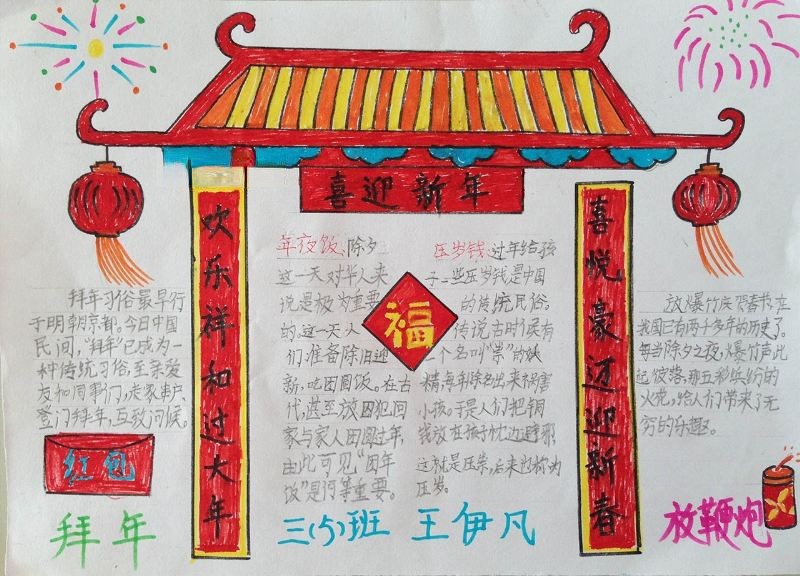 喜迎新年
欢乐祥和过大年
喜悦豪迈迎新春
福
拜年习俗最早行
于明朝京都。今日中国
民间,“拜年”已成为一
种传统习俗,至亲爱
友和同事门,走家串户,
登门拜年,互致问候。
红包
拜年
年夜饭、除夕
这一天对华人来
说是极为重要
的。这一天人
们,准备除旧迎
新,吃团圆饭。在古
代,甚至放囚犯回
家与家人团圆过年,
由此可见“团年
饭”是何等重要。
压岁钱、过年给孩
子一些压岁钱是中国
的传统民俗。
传说古时候有
一个名叫“祟”的妖
精,每年除夕出来祸害
小孩。于是人们把铜
钱放在孩子枕边避邪
这就是压祟,后来也称为
压岁。
三(5)班 王伊凡
放爆竹庆贺春节,在
我国已有两千多年的历史了。
每当除夕之夜,爆竹声此
起彼落,那五彩缤纷的
火花,给人们带来了无
穷的乐趣。
放鞭炮